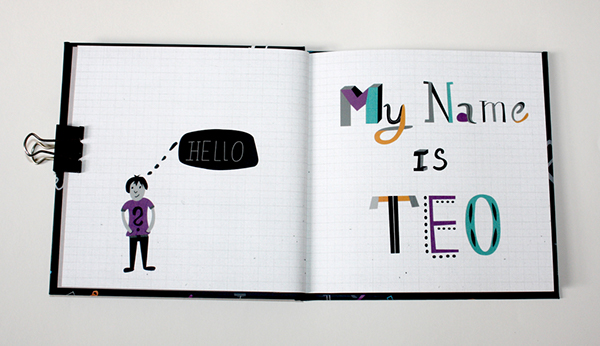 HELLO
My Name
IS
TEO